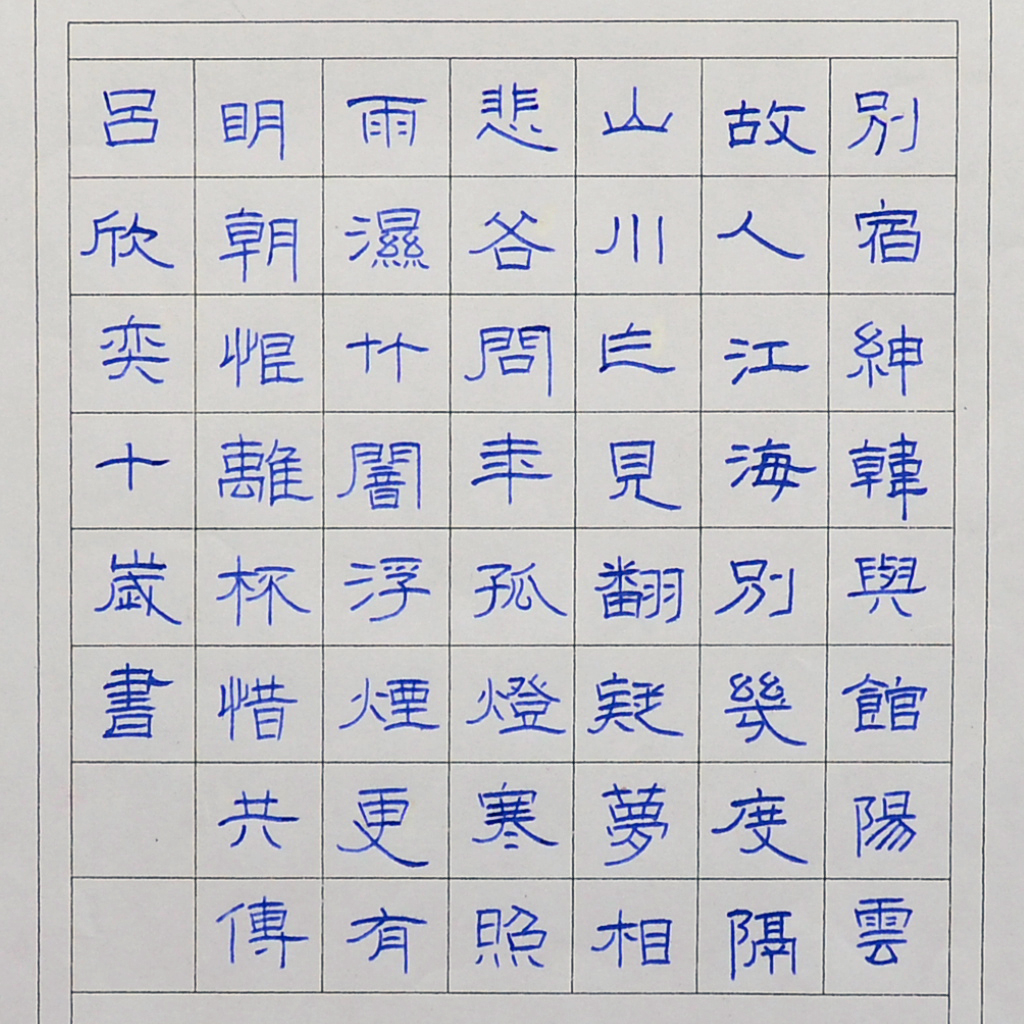 別宿紳韓與館陽雲
故人江海別幾度隔
山川乍見翻疑夢相
悲各問年孤燈寒照
雨濕竹闇浮煙更有
明朝恨離杯惜共傳
呂欣奕十歲書